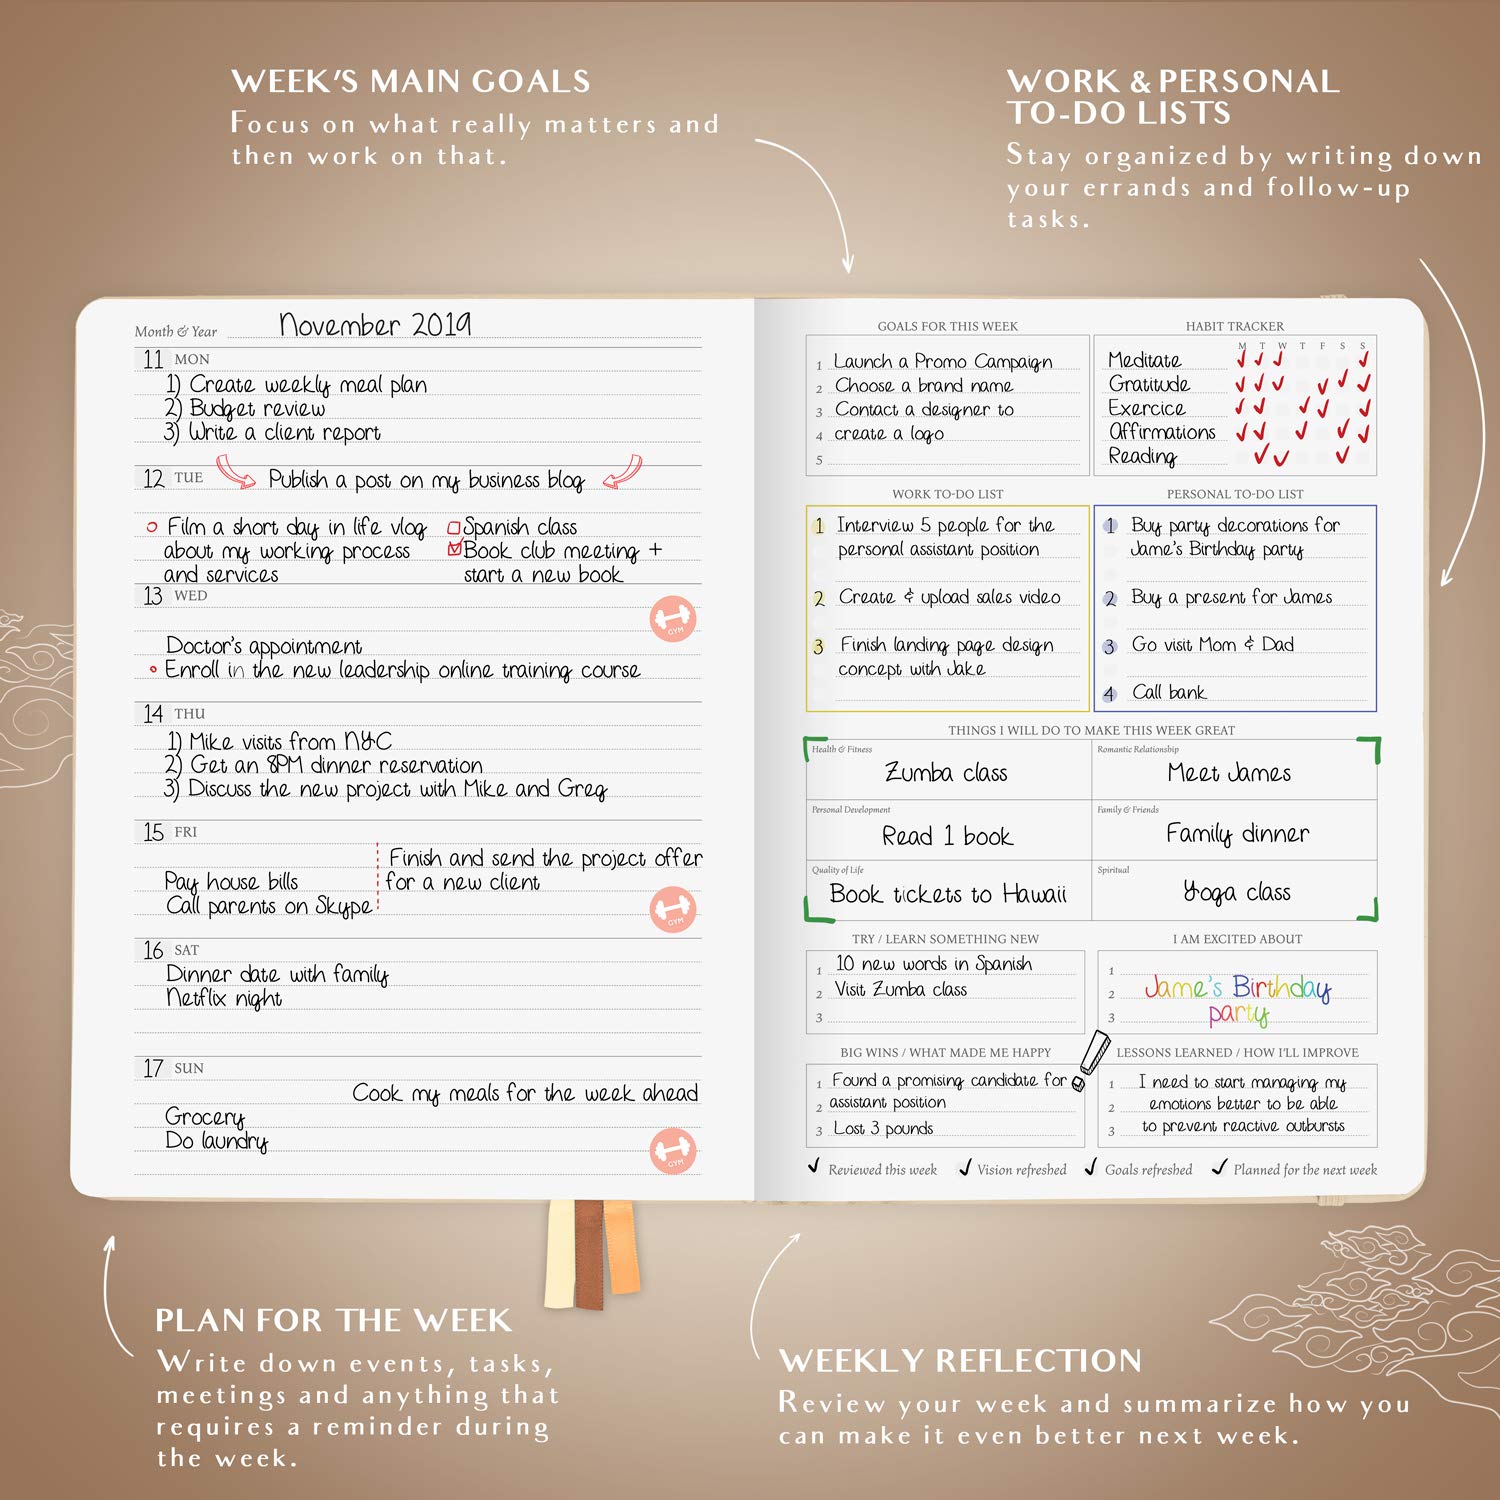 WEEK'S MAIN GOALS
Focus on what really matters and
then work on that.
WORK & PERSONAL
TO-DO LISTS
Stay organized by writing down
your errands and follow-up
tasks.
Month & Year November 2019
11 MON
1) Create weekly meal plan
2) Budget review
3) Write a client report
12 TUE Publish a post on my business blog
Film a short day in life vlog
about my working process
and services
Spanish class
Book club meeting +
start a new book
13 WED
GYM
Doctor's appointment
Enroll in the new leadership online training course
14 THU
1) Mike visits from NYC
2) Get an 8PM dinner reservation
3) Discuss the new project with Mike and Greg
15 FRI
Finish and send the project offer
for a new client
Pay house bills
Call parents on Skype
GYM
16 SAT
Dinner date with family
Netflix night
17 SUN
Cook my meals for the week ahead
Grocery
Do laundry
GYM
GOALS FOR THIS WEEK
1 Launch a Promo Campaign
2 Choose a brand name
3 Contact a designer to
4 create a logo
5
HABIT TRACKER
M T W T F S S
Meditate
Gratitude
Exercice
Affirmations
Reading
WORK TO-DO LIST
1 Interview 5 people for the
personal assistant position
2 Create & upload sales video
3 Finish landing page design
concept with Jake
PERSONAL TO-DO LIST
1 Buy party decorations for
Jame's Birthday party
2 Buy a present for James
3 Go visit Mom & Dad
4 Call bank
THINGS I WILL DO TO MAKE THIS WEEK GREAT
Health & Fitness
Zumba class
Romantic Relationship
Meet James
Personal Development
Read 1 book
Family & Friends
Family dinner
Quality of Life
Book tickets to Hawaii
Spiritual
Yoga class
TRY / LEARN SOMETHING NEW
1 10 new words in Spanish
2 Visit Zumba class
3
I AM EXCITED ABOUT
1
2 Jame's Birthday
3 party
BIG WINS / WHAT MADE ME HAPPY
1 Found a promising candidate for
2 assistant position
3 Lost 3 pounds
!
LESSONS LEARNED / HOW I'LL IMPROVE
1 I need to start managing my
2 emotions better to be able
3 to prevent reactive outbursts
Reviewed this week Vision refreshed Goals refreshed Planned for the next week
PLAN FOR THE WEEK
Write down events, tasks,
meetings and anything that
requires a reminder during
the week.
WEEKLY REFLECTION
Review your week and summarize how you
can make it even better next week.